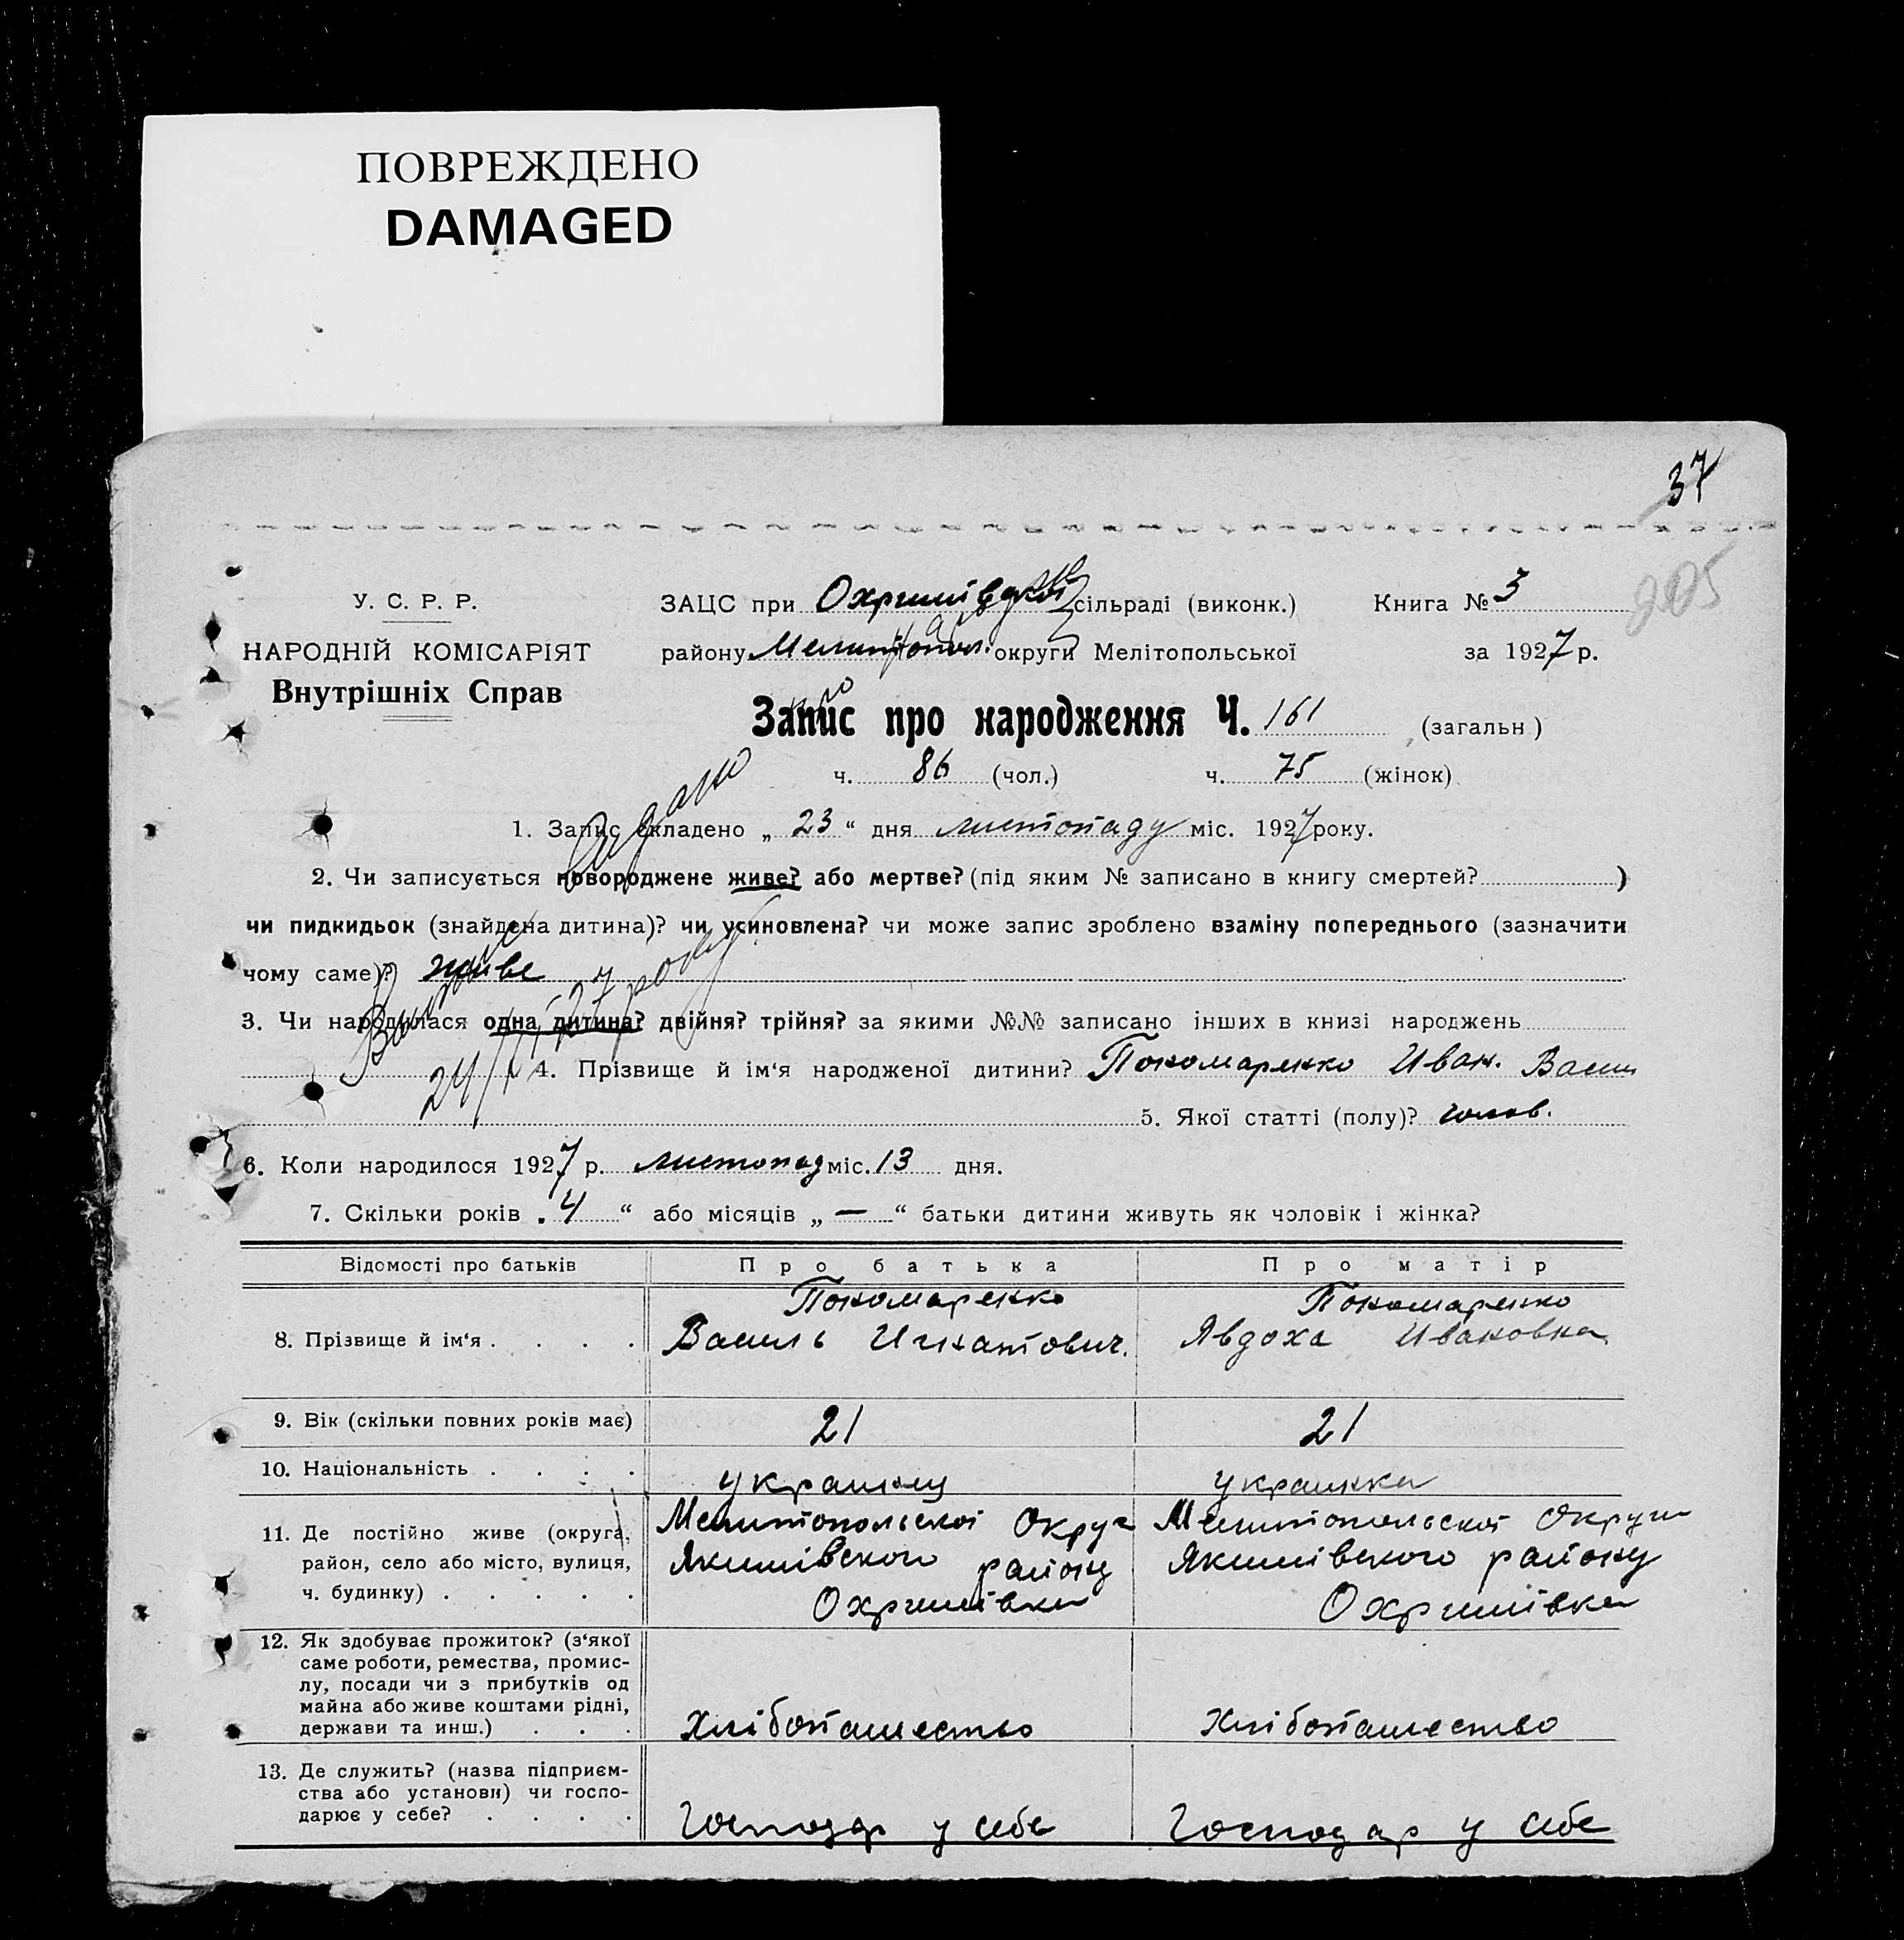 ПОВРЕЖДЕНО
DAMAGED
37
205
У. С. Р. Р.
НАРОДНІЙ КОМІСАРІЯТ
Внутрішніх Справ
ЗАЦС при Охримівській сільраді (виконк.)
району Мелитопол. округи Мелітопольської
Книга № 3
за 1927 р.
Запис про народження Ч. 161 (загальн)
ч. 86 (чол.) ч. 75 (жінок)
1. Запис складено „ 23 “ дня листопаду міс. 1927 року.
2. Чи записується новороджене живе? або мертве? (під яким № записано в книгу смертей? )
чи пидкидьок (знайдена дитина)? чи усиновлена? чи може запис зроблено взаміну попереднього (зазначити
чому саме)? живе
3. Чи народилася одна дитина? двійня? трійня? за якими №№ записано інших в книзі народжень
4. Прізвище й ім‘я народженої дитини? Пономаренко Иван. Васил
5. Якої статті (полу)? чолов.
6. Коли народилося 1927 р. листопад міс. 13 дня.
7. Скільки років „ 4 “ або місяців „ — “ батьки дитини живуть як чоловік і жінка?
Відомості про батьків Про батька Про матір
8. Прізвище й ім‘я . . . .
Пономаренко
Василь Игнатович.
Пономаренко
Явдоха Ивановна
9. Вік (скільки повних років має) 21 21
10. Національність . . . . украинц украинка
11. Де постійно живе (округа,
район, село або місто, вулиця,
ч. будинку) . . . . .
Мелитопольської Округи
Якимівского району
Охримівка
Мелитопольскої Округи
Якимівского району
Охримівка
12. Як здобуває прожиток? (з‘якої
саме роботи, ремества, промис-
лу, посади чи з прибутків од
майна або живе коштами рідні,
держави та инш.) . . .
Хлібопашество
Хлібопашество
13. Де служить? (назва підприєм-
ства або установи) чи госпо-
дарює у себе? . . . .
Господар у себе
Господар у себе